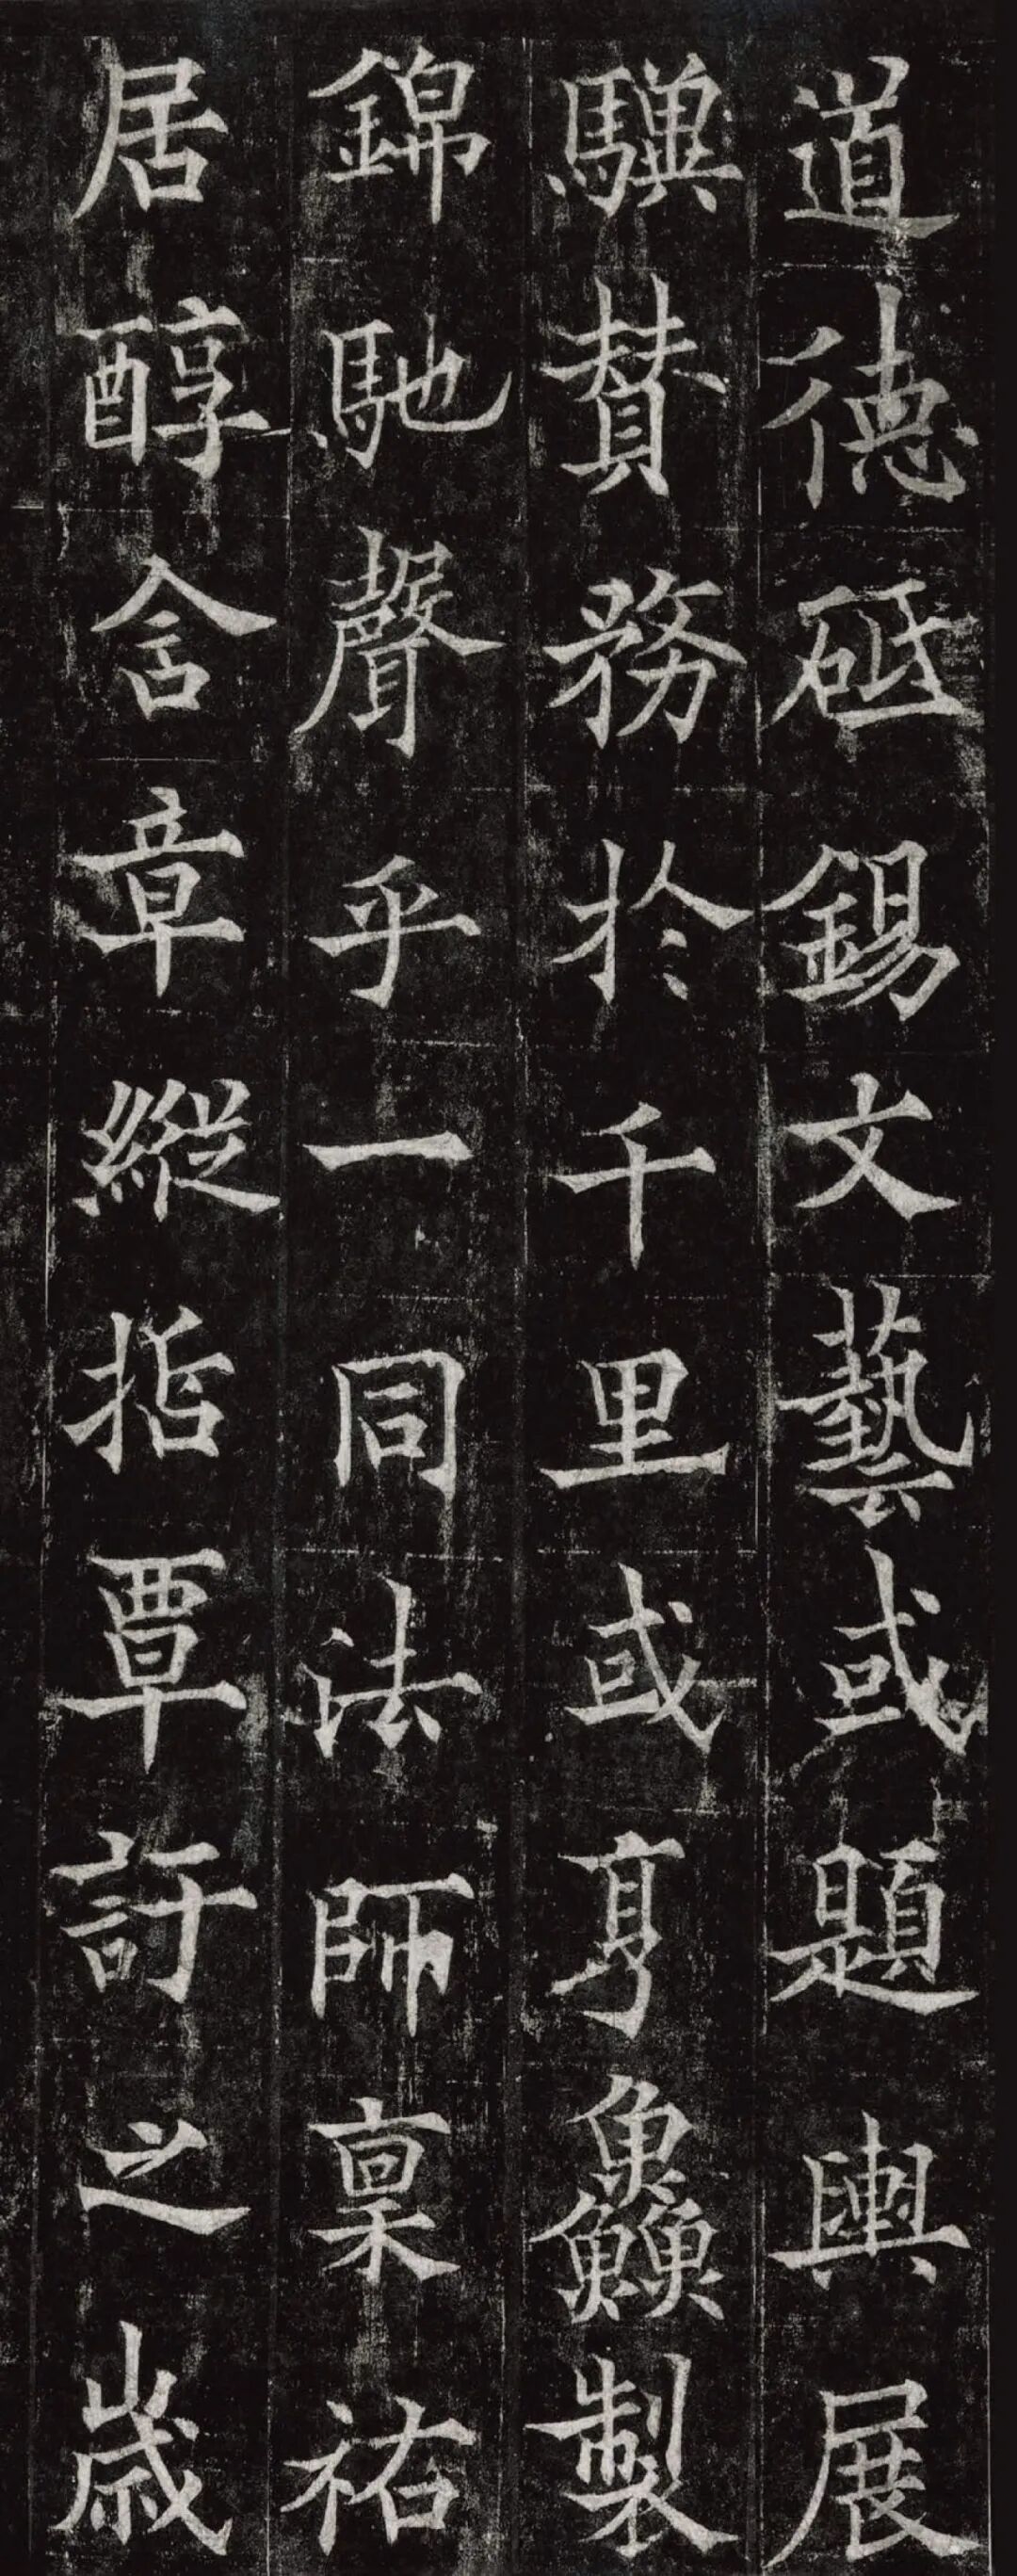 道德砥錫文藝或題輿展
驥贊務於千里或亨鱻製
錦馳聲乎一同法師稟祐
居醇含章縱指覃訏之歲